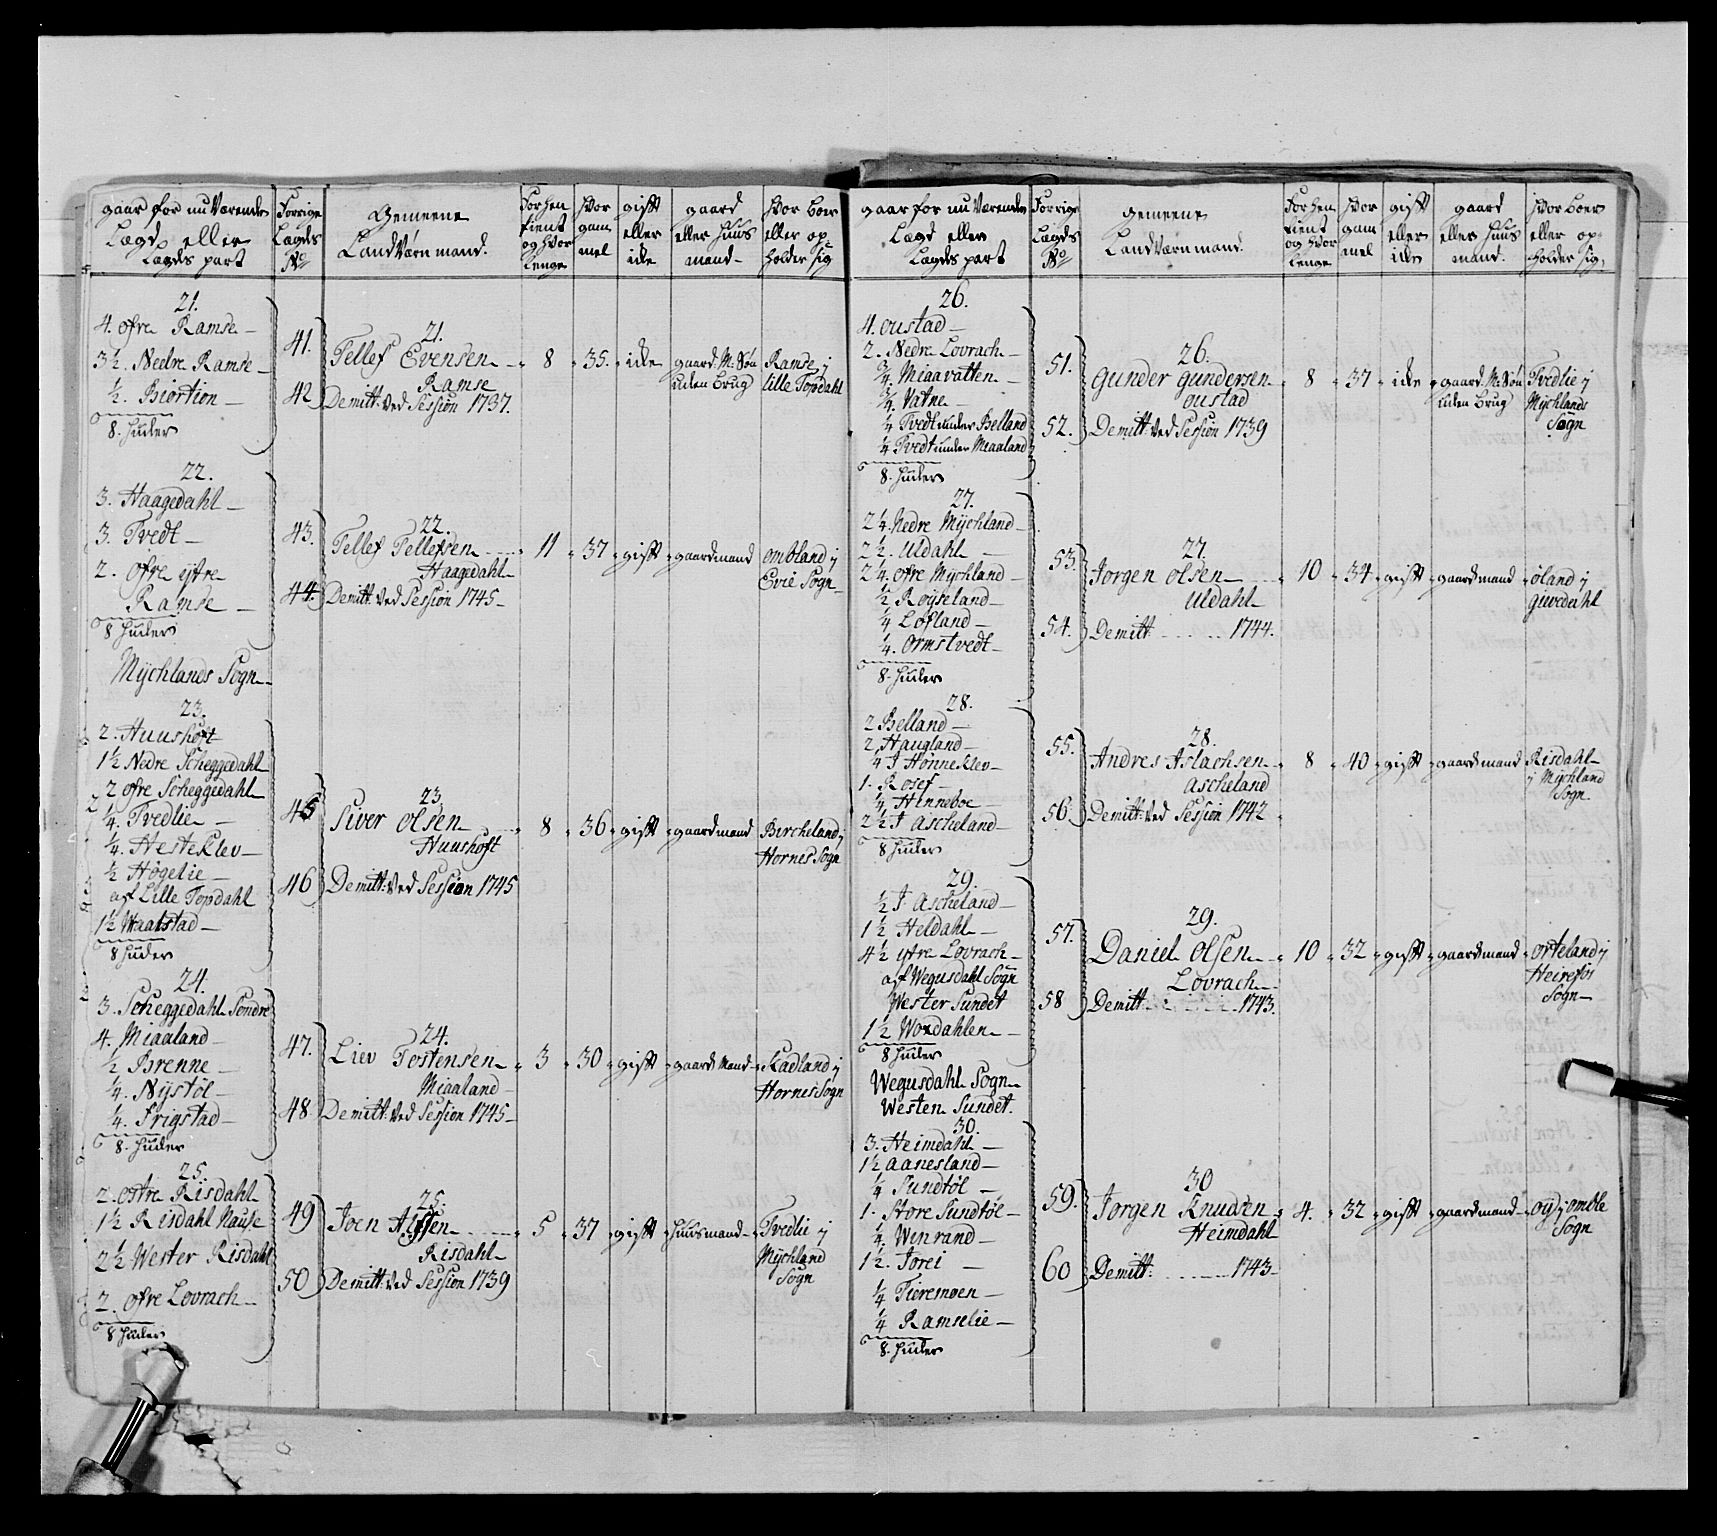 gaar for nu Værende
Lægd eller
Lægds part
Forrige
Lægds
No
Gemeene
LandVærn mand.
Forhen
tient
og hvor
lenge
Hvor
gam
mel
gift
eller
icke
gaard
eller Huus
mand
Hvor boer
eller op
holder sig
21.
4. øfre Ramse
3½. Nedre Ramse
½. Biortion
8. Huder
41.
42
21.
Tellef Evensen
Ramse
Demitt: Ved Session 1737.
8
35.
icke
gaard M: Søn
uden brug
Ramse j
lille Topdahl
22.
3. Haagedahl
3. Tvedt
2. øfre ytre
Ramse
8 Huder
43.
44.
22.
Tellef Tellefsen
Haagedahl
Demitt: Ved Session 1745
11
37
gift
gaardmand
ombland j
Evie Sogn
Mychlands Sogn
23.
2. Huushoft
1½ Nedre Scheggedahl
2 øfre Scheggedahl
¼. Tvedlie
¼. Hesteklev
½ Høgelie
af Lille Topdahl
1½ Waatstad
8 Huder
45
46
23.
Siver olsen
Huushoft
Demitt: Ved Session 1745
8
36
gift
gaardmand
Bircheland j
Hornes Sogn
24.
3. Scheggedahl Søndre
4. Miaaland
½ Brenne
¼. Nystøl
¼. Frigstad
8. Huder
47.
48
24.
Liev Tostensen
Miaaland
Demitt: Ved Session 1745
3
30
gift
gaard Mand
Kadland j
Hornes Sogn
25.
2. ostre Risdahl
1½ Risdahl Hause
2½ Wester Risdahl
2. øfre Lovrach
8 Huder
49
50
25.
Joen
Risdahl
Demitt: Ved Session 1739
5
37
gift
Huusmand
Tvedlie j
Mychland
Sogn
gaar for nu Værende
Lægd eller
Lægds part
Forrige
Lægds
No
gemeene
Landværn mand.
Forhen
tient
og hvor
lenge
Hvor
gam
mel
gift
eller
icke
gaard
eller Huus
mand.
Hvor boer
eller op-
holder sig,
26.
4. oustad
2. Nedre Lovrach
¾. Miaavatten
¾. Vatne
¼ Tvedt under Belland
¼ Tvedt under Miaaland
8. Huder
51.
52.
26.
Gunder gundersen
oustad
Demitt: Ved Session 1739
8
37
icke
gaard M: Søn
uden Brug
Tvedlie j
Mychlands
Sogn
27.
2¼. Nedre Mychland
2½. Uldahl
2¼. øfre Mychland
½ Røyseland
¼ Lofland
¼. Ormstvedt
8. Huder
53.
54.
27.
Jorgen olsen
Uldahl
Demitt: 1744.
10
34
gift
gaardmand
øland j
givedahl
28.
2 Belland
2 Haugland
¼ J Honneklev
1. Rosef
¼ Hinneboe
2½ J Ascheland
8 Huder
55.
56.
28.
Andres Aslachsen
ascheland
Demitt: ved Session 1742
8
40
gift
gaardmand
Risdahl
j Mychland
Sogn
29.
½ J Ascheland
1½ Heldahl
4½ ytre Lovrach
af Wegusdahl Sogn
Wester Sundet
1½ Wordahlen
8 Huder
57.
58
29.
Daniel olsen
Lovrach
Demitt: 1743.
10
32
gift
gaardmand
orteland j
Heirefos
Sogn
Wegusdahl Sogn
Westen Sundet.
30.
3. Heimdahl
1½ aanesland
¼ Sundtøl
1. Store Sundtøl
¼. Winrand
1½. Jorei
¼ Tieremoen
¼ Ramselie
8. Huder
59.
60
30
Jørgen Knudsen
Heimdahl
Demitt: 1743
4.
32
gift
gaardmand
oy j omble
Sogn